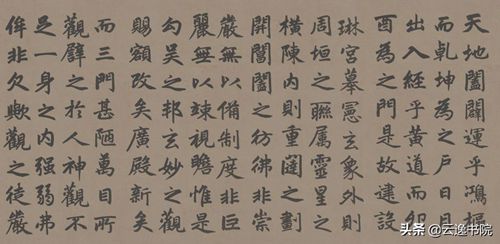 天地闔闢運乎鴻樞
而乾坤為之戶日月
出入經乎黃道而卯
酉為之門是故建設
琳宮摹憲玄象外則
周垣之聯属靈星之
橫陳内則重闥之劃
開閶闔之彷彿非崇
嚴無以備制度非巨
麗無以竦視瞻惟是
勾吳之邦玄妙之觀
賜額改矣廣殿新矣
而三門甚陋萬目所
觀譬之於人神觀不
足一身之内强弱弗
侔非欠歟觀之徒嚴
头条 @云逸书院